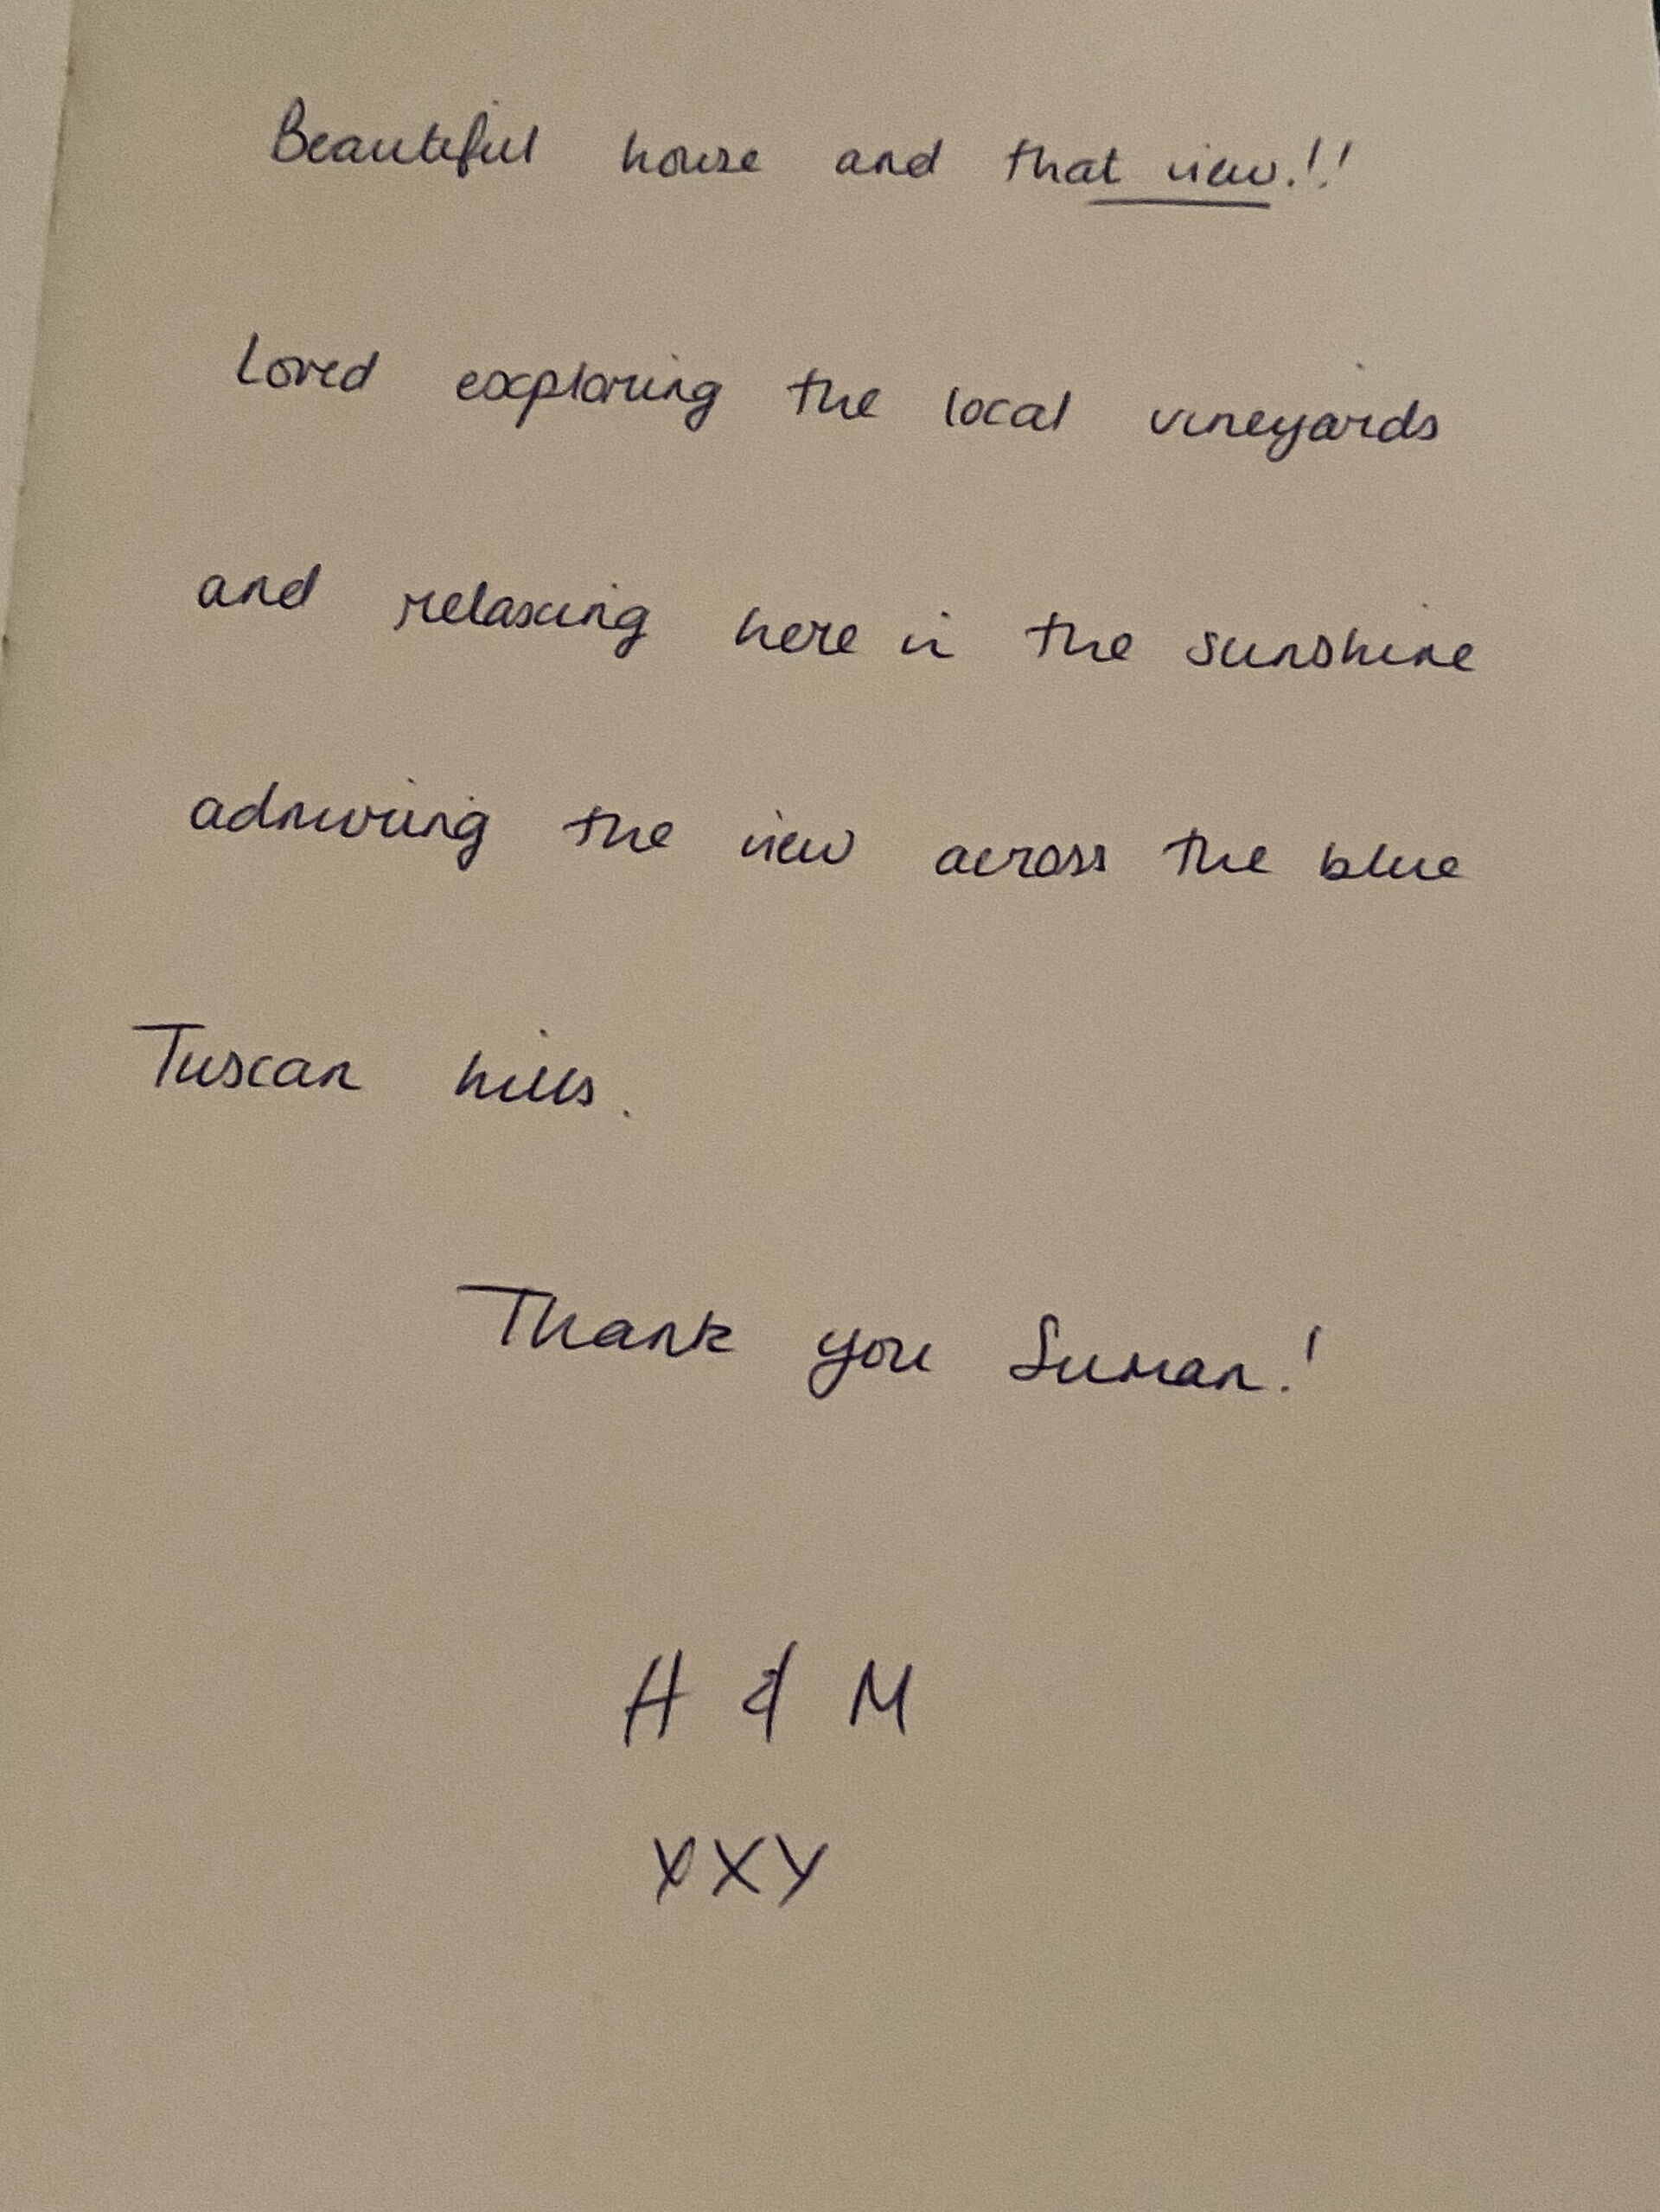 Beautiful house and that view!!
Loved exploring the local vineyards
and relaxing here in the sunshine
admiring the view across the blue
Tuscan hills.
Thank you Suman!
H & M
XXX